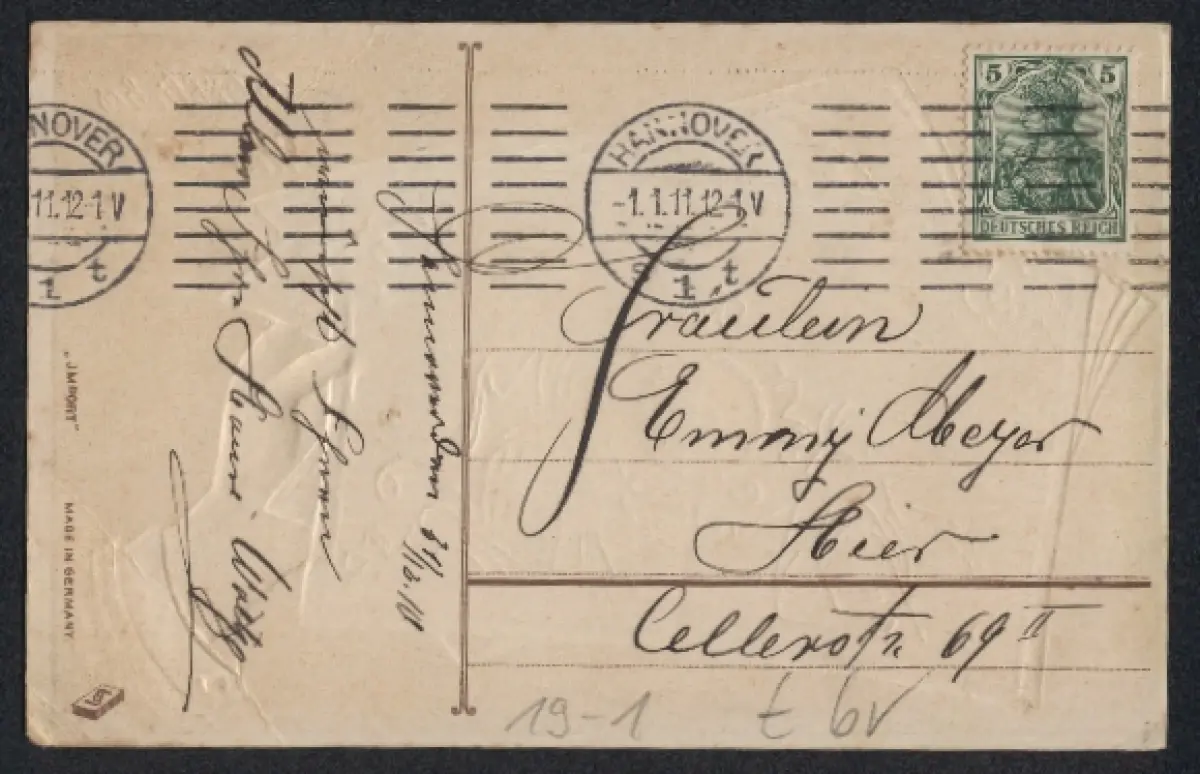 HANNOVER
-1.1.11.12-1V
s 1 t
NNOVER
11.12-1V
1 t
5 5
DEUTSCHES REICH
Fräulein
Emmy Meyer
Hier
Cellerstr. 69 II
19-1 t 6V
wünscht Ihnen
Hans
31/12.10
"IMPORT"
MADE IN GERMANY